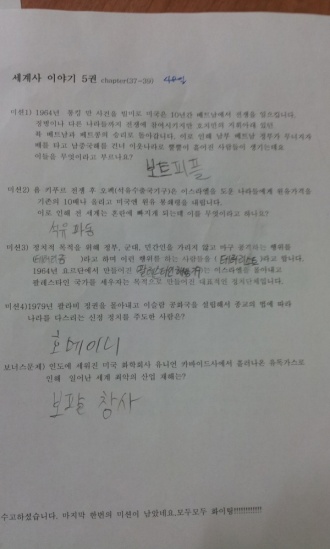 세계사 이야기 5권 chapter(37-39)
미션1) 1964년 통킹 만 사건을 빌미로 미국은 10년간 베트남에서 전쟁을 일으킵니다.
전쟁은 북 베트남과 베트콩의 승리로 돌아갑니다. 이로 인해 남부 베트남 정부가 무너지자
배를 타고 남중국해를 건너 이웃나라로 흩어진 사람들이 생기는데요
이들을 무엇이라고 부르나요?
보트피플
미션2) 욤 키푸르 전쟁 후 오펙(석유수출국기구)은 이스라엘을 도운 나라들에게 원유가격을
기존의 10배나 올리고 미국엔 원유 통제령을 내립니다.
이로 인해 전 세계는 혼란에 빠지게 되는데 이를 무엇이라고 하나요?
석유파동
미션3) 정치적 목적을 위해 정부, 군대, 민간인을 가리지 않고 마구 공격하는 행위를
라고 하며 이런 행위를 하는 사람들을 라고 합니다.
1964년 요르단에서 만들어진 는 이스라엘을 몰아내고
팔레스타인 국가를 세우자는 목적으로 만들어진 대표적인 정치단체입니다.
미션4)1979년 팔라비 정권을 몰아내고 이슬람 공화국을 설립해서 종교의 법에 따라
나라를 다스리는 신정 정치를 주도한 사람은?
호메이니
보너스문제) 인도에 세워진 미국 화학회사 유니언 카바이드사에서 흘러나온 유독가스로
인해 일어난 세계 최악의 산업 재해는?
보팔 참사
수고하셨습니다. 마지막 한번의 미션이 남았네요.모두모두 화이팅!!!!!!!!!!!!